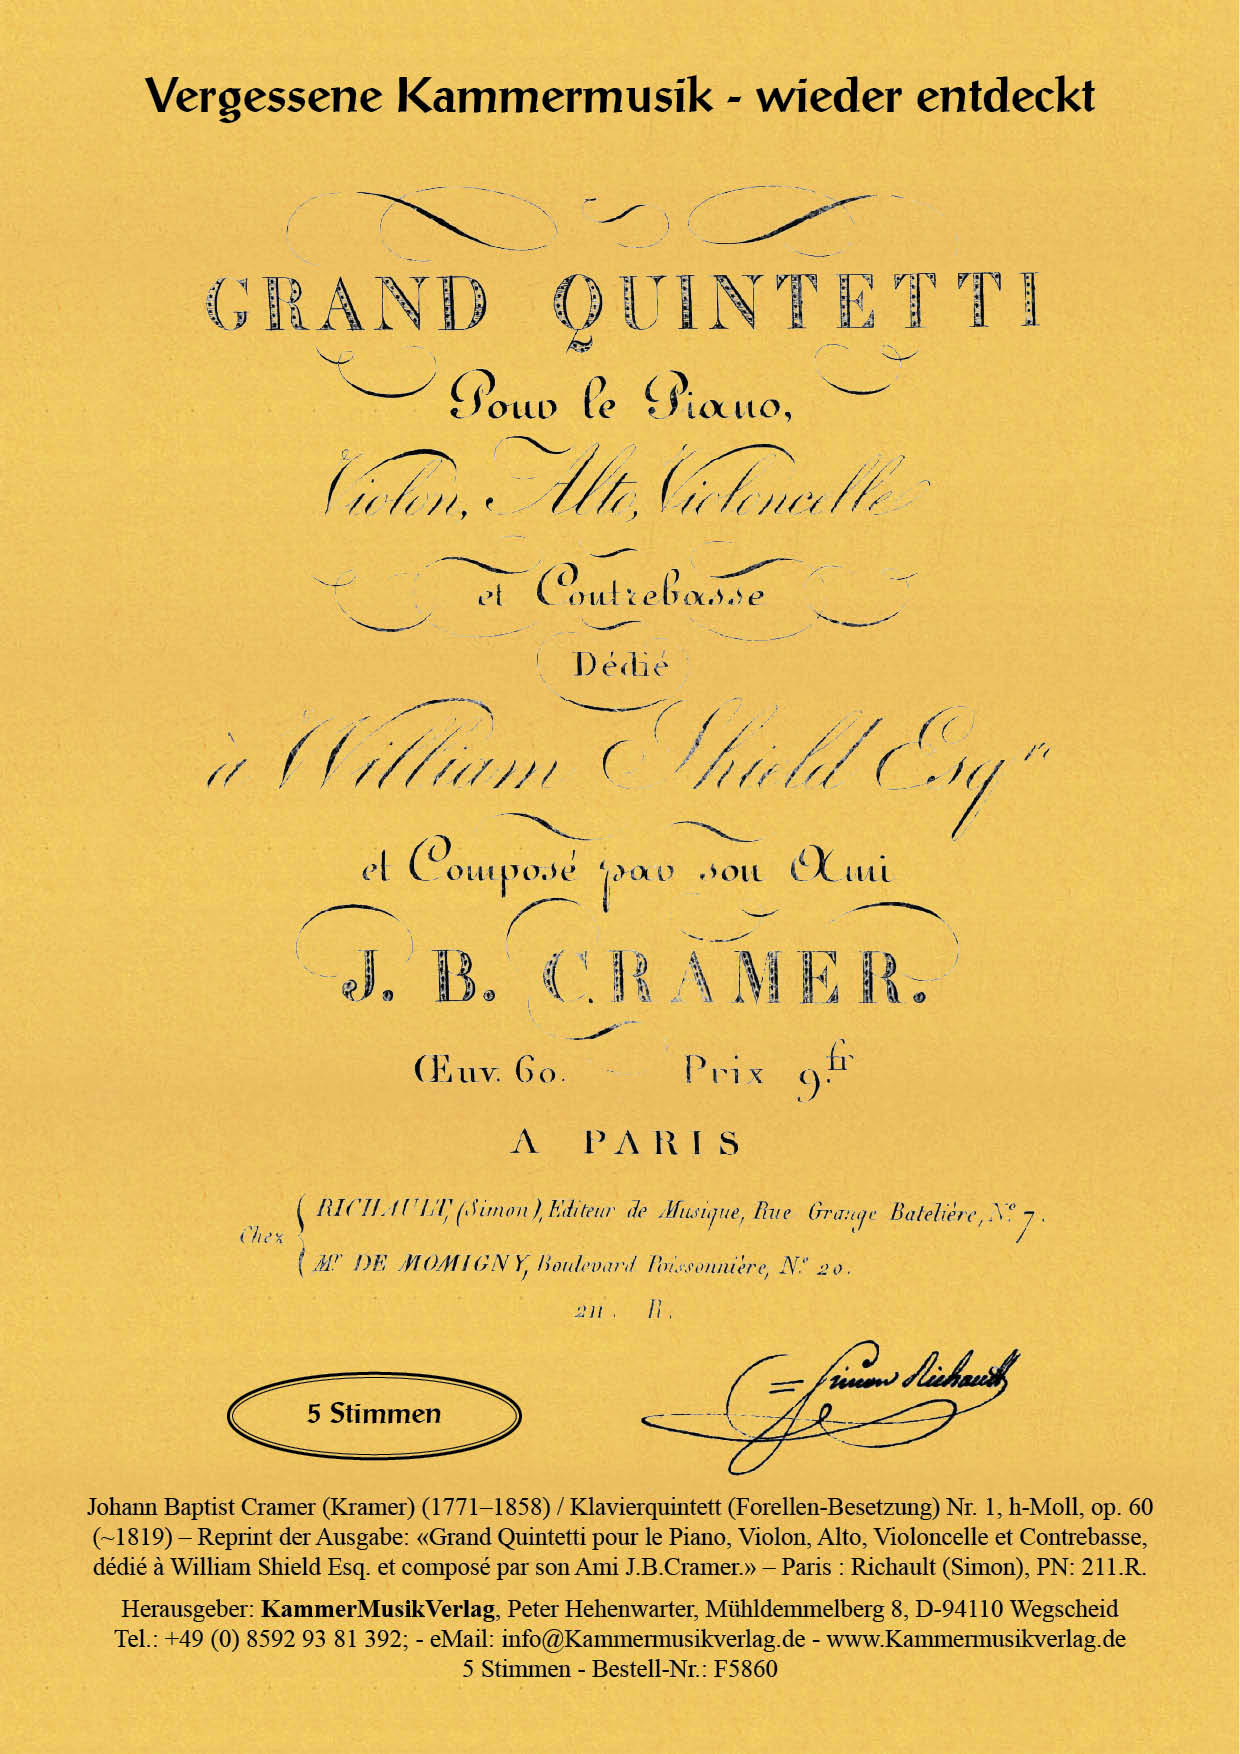 Vergessene Kammermusik - wieder entdeckt
GRAND QUINTETTI
Pour le Piano,
Violon, Alto, Violoncelle
et Contrebasse
Dédié
à William Shield Esqre
et Composé par son Ami
J. B. CRAMER.
Œuv. 60. Prix 9.fr
A PARIS
Chez
RICHAULT, (Simon), Editeur de Musique, Rue Grange Batelière, No. 7.
Mr. DE MOMIGNY, Boulevard Poissonnière, No. 20.
211. R.
Simon Richault
5 Stimmen
Johann Baptist Cramer (Kramer) (1771–1858) / Klavierquintett (Forellen-Besetzung) Nr. 1, h-Moll, op. 60
(~1819) – Reprint der Ausgabe: «Grand Quintetti pour le Piano, Violon, Alto, Violoncelle et Contrebasse,
dédié à William Shield Esq. et composé par son Ami J.B.Cramer.» – Paris : Richault (Simon), PN: 211.R.
Herausgeber: KammerMusikVerlag, Peter Hehenwarter, Mühldemmelberg 8, D-94110 Wegscheid
Tel.: +49 (0) 8592 93 81 392; - eMail: info@Kammermusikverlag.de - www.Kammermusikverlag.de
5 Stimmen - Bestell-Nr.: F5860